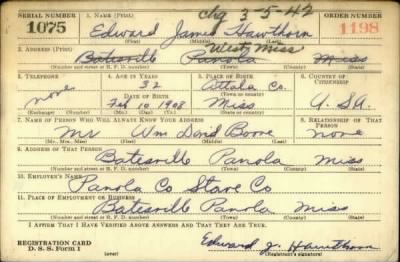 SERIAL NUMBER 1. NAME (Print) Chg 3-5-42 ORDER NUMBER
1075 Edward James Hawthorn 1198
(First) (Middle) (Last)
2. ADDRESS (Print) West Miss
Batesville Panola Miss
(Number and street or R. F. D. number) (Town) (County) (State)
3. TELEPHONE 4. AGE IN YEARS 5. PLACE OF BIRTH 6. COUNTRY OF CITIZENSHIP
none 32 Attala Co.
DATE OF BIRTH (Town or county)
Feb 10 1908 Miss U. S. A.
(Exchange) (Number) (Mo.) (Day) (Yr.) (State or country)
7. NAME OF PERSON WHO WILL ALWAYS KNOW YOUR ADDRESS 8. RELATIONSHIP OF THAT PERSON
Mr Wm David Boone none
(Mr., Mrs., Miss) (First) (Middle) (Last)
9. ADDRESS OF THAT PERSON
Batesville Panola Miss
(Number and street or R. F. D. number) (Town) (County) (State)
10. EMPLOYER'S NAME
Panola Co Stave Co
11. PLACE OF EMPLOYMENT OR BUSINESS
Batesville Panola Miss
(Number and street or R. F. D. number) (Town) (County) (State)
I AFFIRM THAT I HAVE VERIFIED ABOVE ANSWERS AND THAT THEY ARE TRUE.
REGISTRATION CARD Edward J. Hawthorn
D. S. S. Form 1 (over) (Registrant's signature)